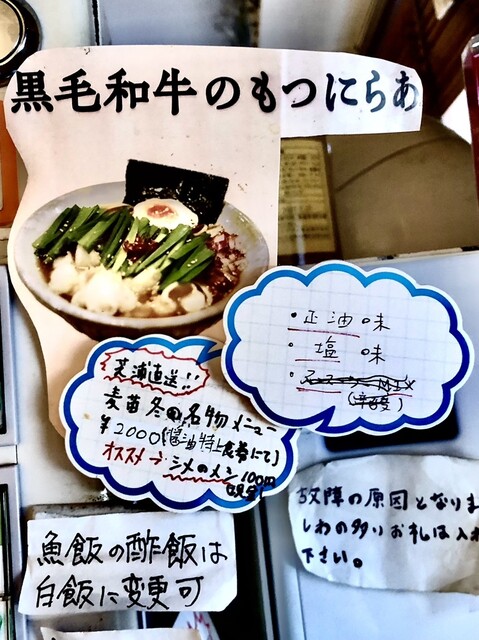 黒毛和牛のもつにらあ
・正油味
・塩味
産直送!!
麦苗冬の名物メニュー
¥2000(醤油特上食券にて)
オススメ→シメのメン100円
現金
故障の原因となりま
しわの多いお札は入れ
下さい。
魚飯の酢飯は
白飯に変更可